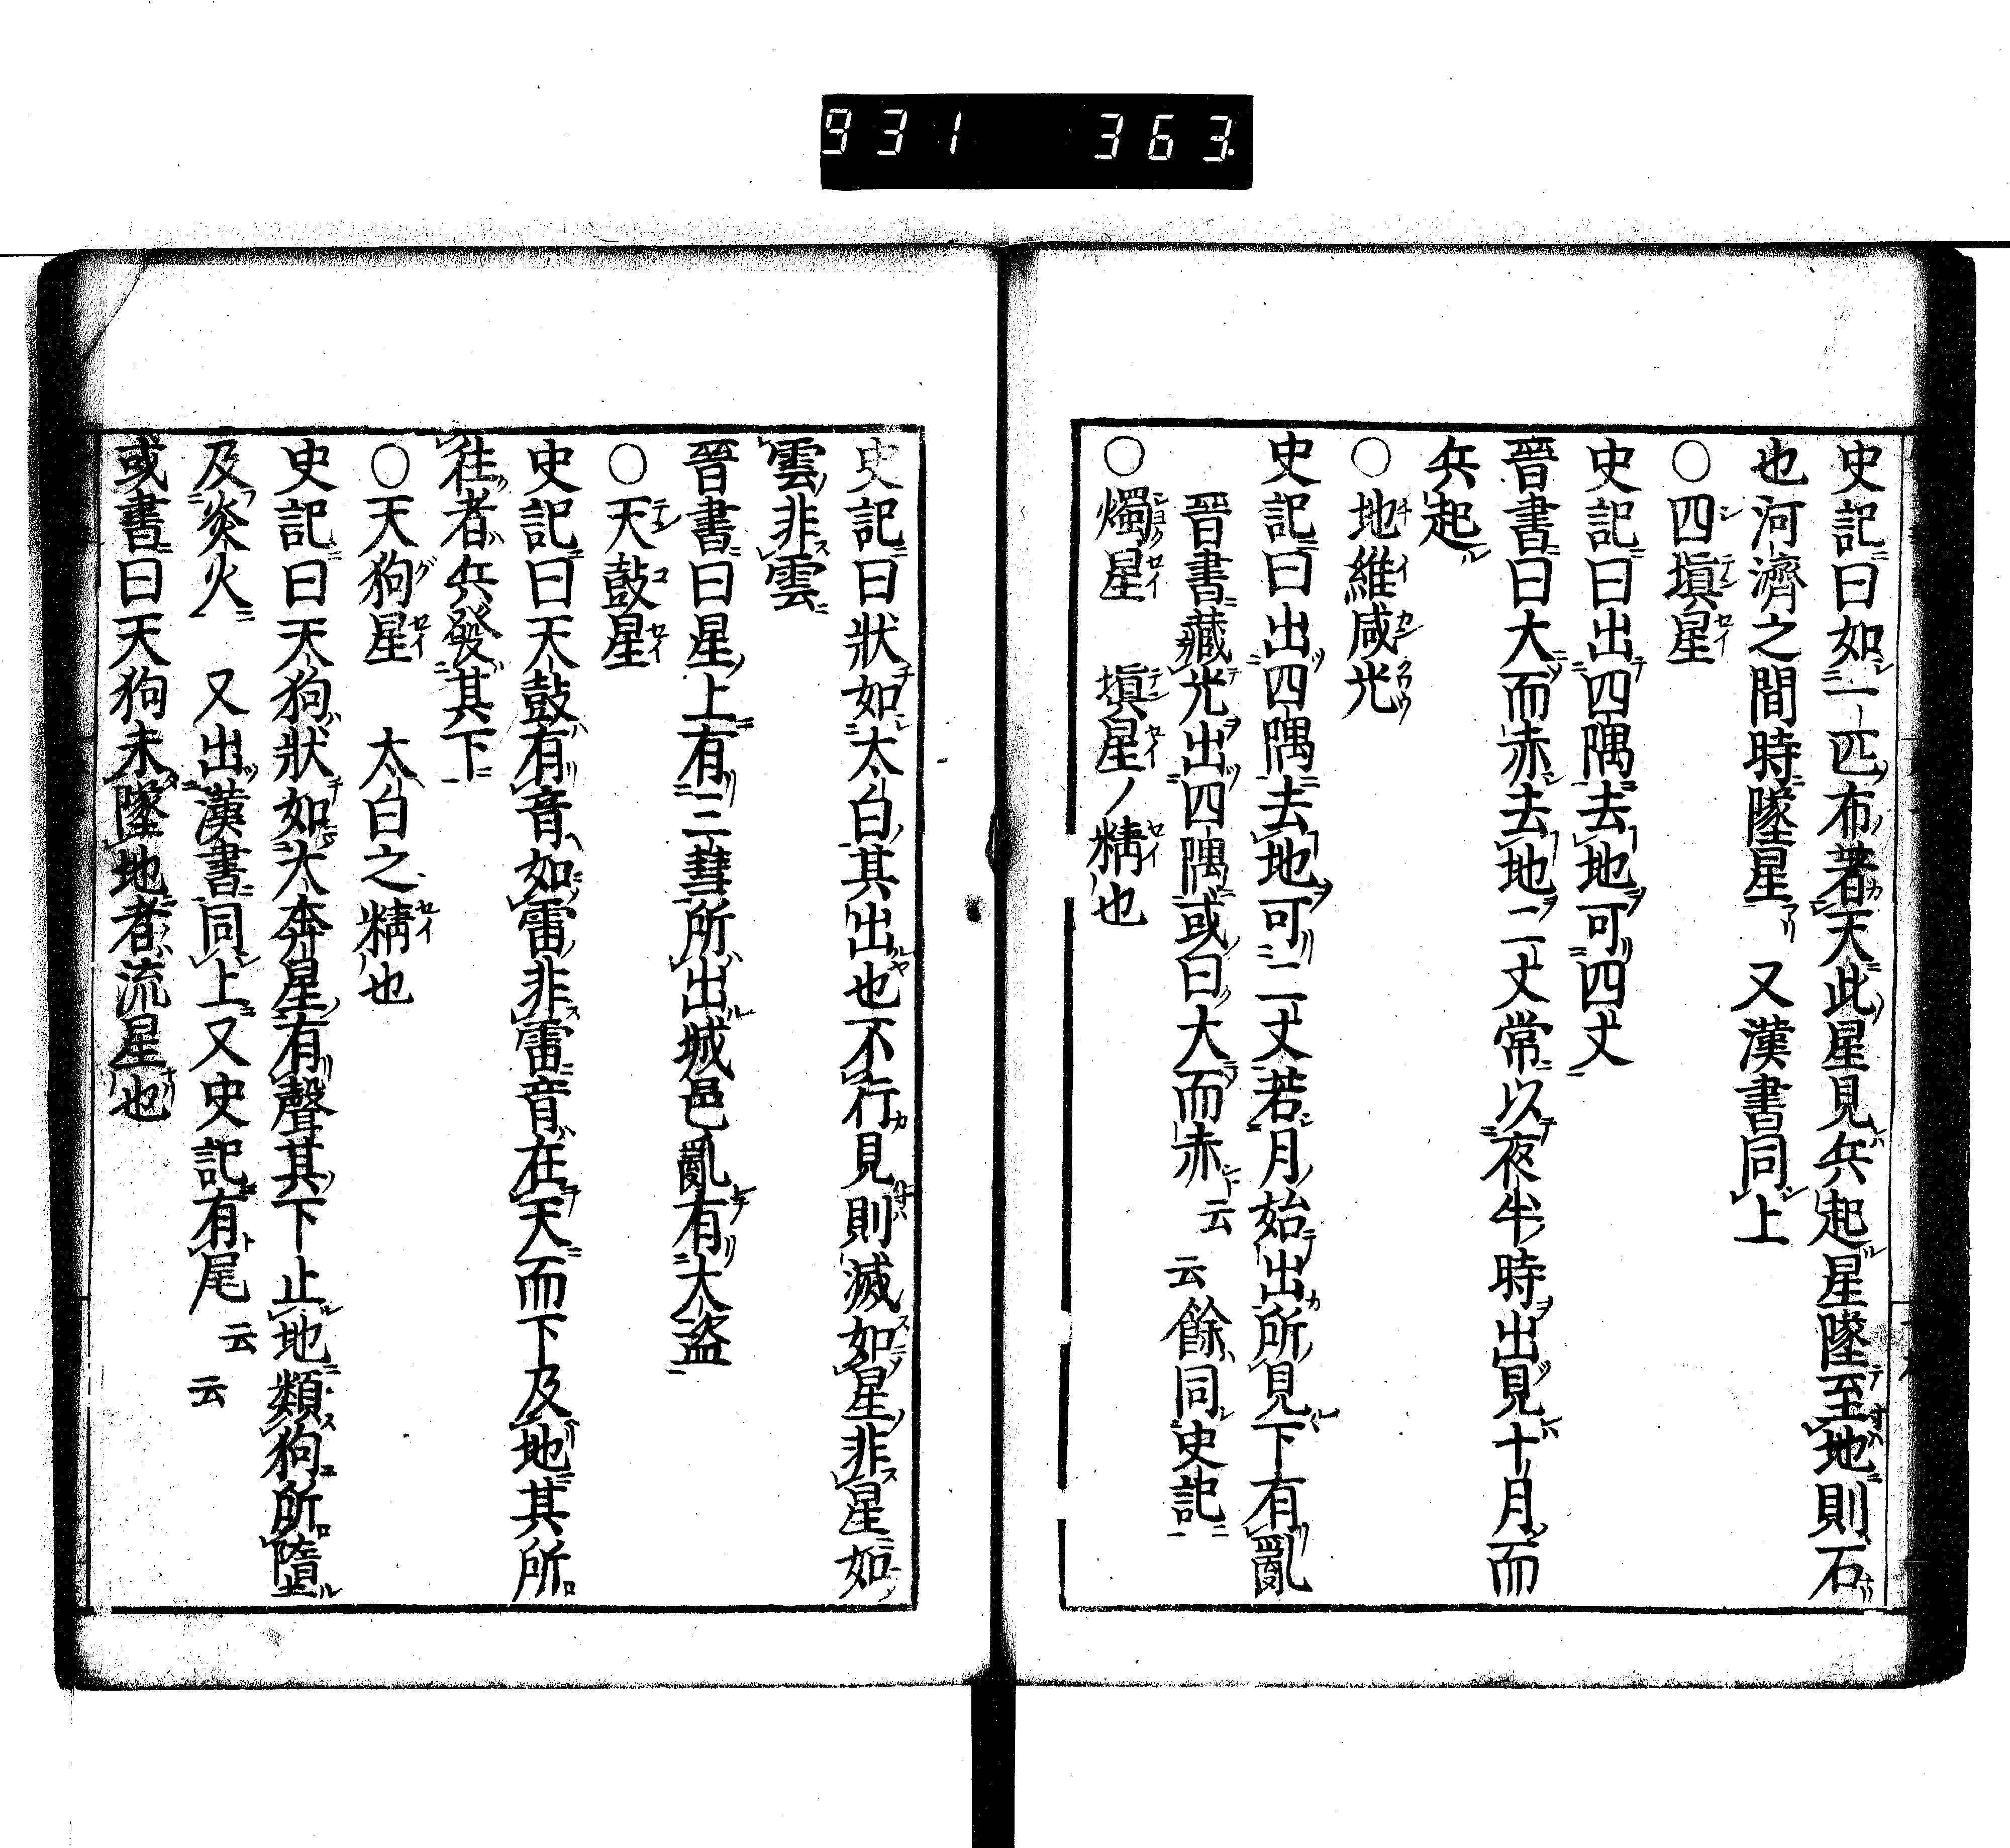 931 363.
史記曰如一匹布著天此星見兵起星墜至地則石
也河濟之間時墜星 又漢書同上
○四塡星
史記曰出四隅去地可四丈
晉書曰大而赤去地二丈常以夜半時出見十月而
兵起
○地維咸光
史記曰出四隅去地可二丈若月始出所見下有亂
晉書藏光出四隅或曰大而赤云云餘同史記
○燭星 塡星ノ精也
史記曰狀如太白其出也不行見則滅如星非星如
雲非雲
晉書曰星上有三彗所出城邑亂有大盜
○天鼓星
史記曰天鼓有音如雷非雷音在天而下及地其所
往者兵發其下
○天狗星 太白之精也
史記曰天狗狀如大奔星有聲其下止地類狗所墮
及炎火 又出漢書同上又史記有尾云云
或書曰天狗未墜地者流星也